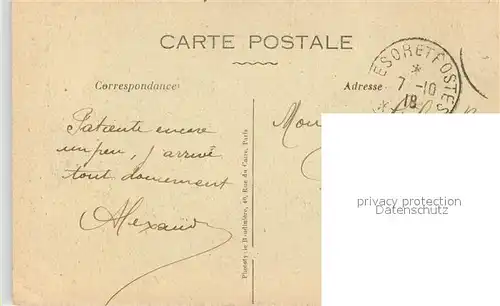 CARTE POSTALE
Correspondance
Adresse
ESORETPOSTES
*
7-10
18
*
Patiente encore
un peu, j'arrive
tout doucement
Alexand
Mon
Phototypie Baudinière, 40, Rue du Caire, Paris
privacy protection
Datenschutz